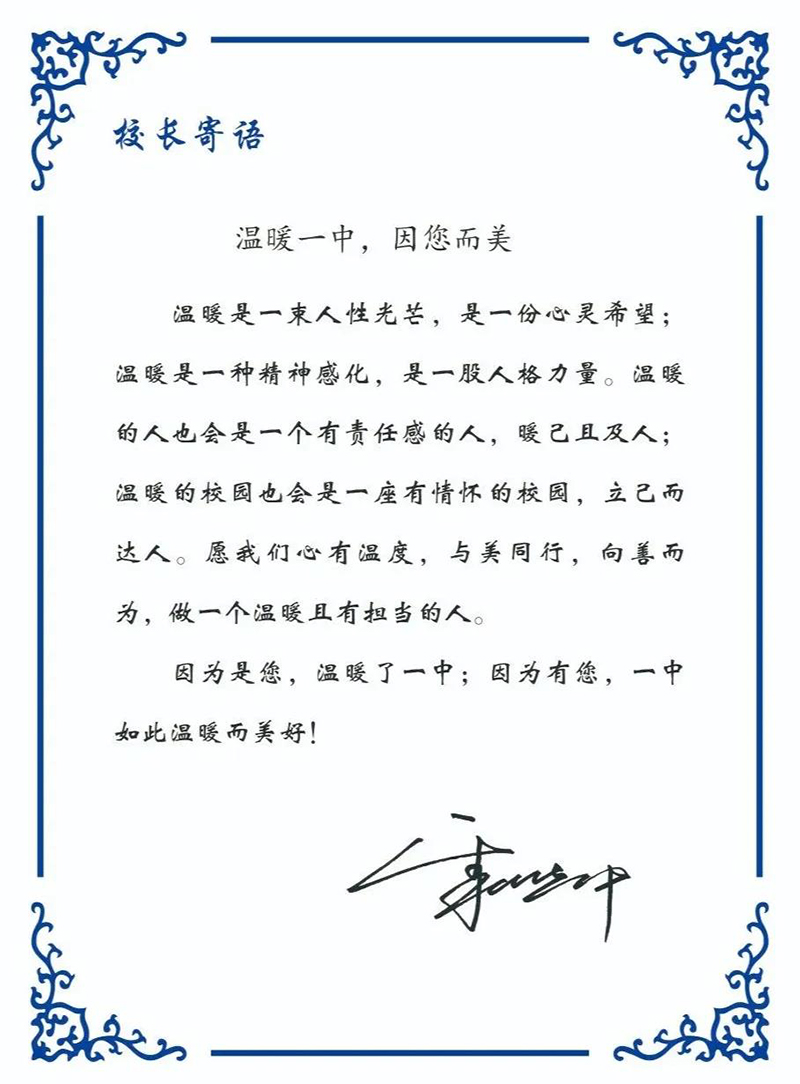 校长寄语
温暖一中，因您而美
温暖是一束人性光芒，是一份心灵希望；
温暖是一种精神感化，是一股人格力量。温暖
的人也会是一个有责任感的人，暖己且及人；
温暖的校园也会是一座有情怀的校园，立己而
达人。愿我们心有温度，与美同行，向善而
为，做一个温暖且有担当的人。
因为是您，温暖了一中；因为有您，一中
如此温暖而美好！